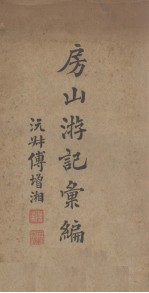 房山游記彙編
沅叔傅增湘